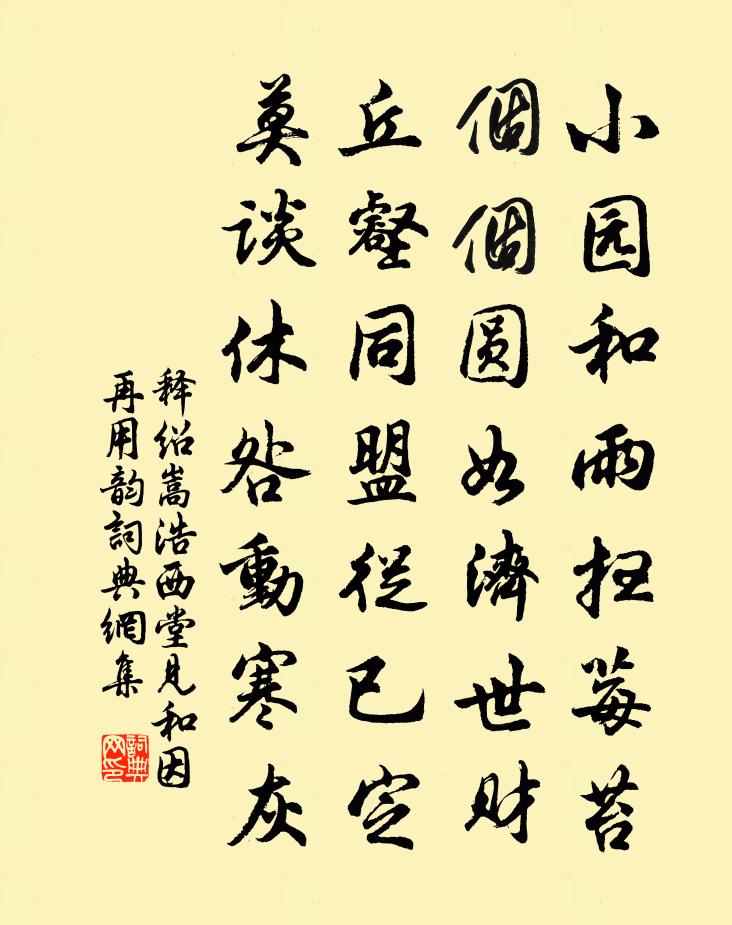 小园和雨扫莓苔
個個圆如濟世财
丘壑同盟從已定
莫谈休咎動寒灰
释绍嵩浩西堂见和因
再用韵詞典網集
詞典
网印